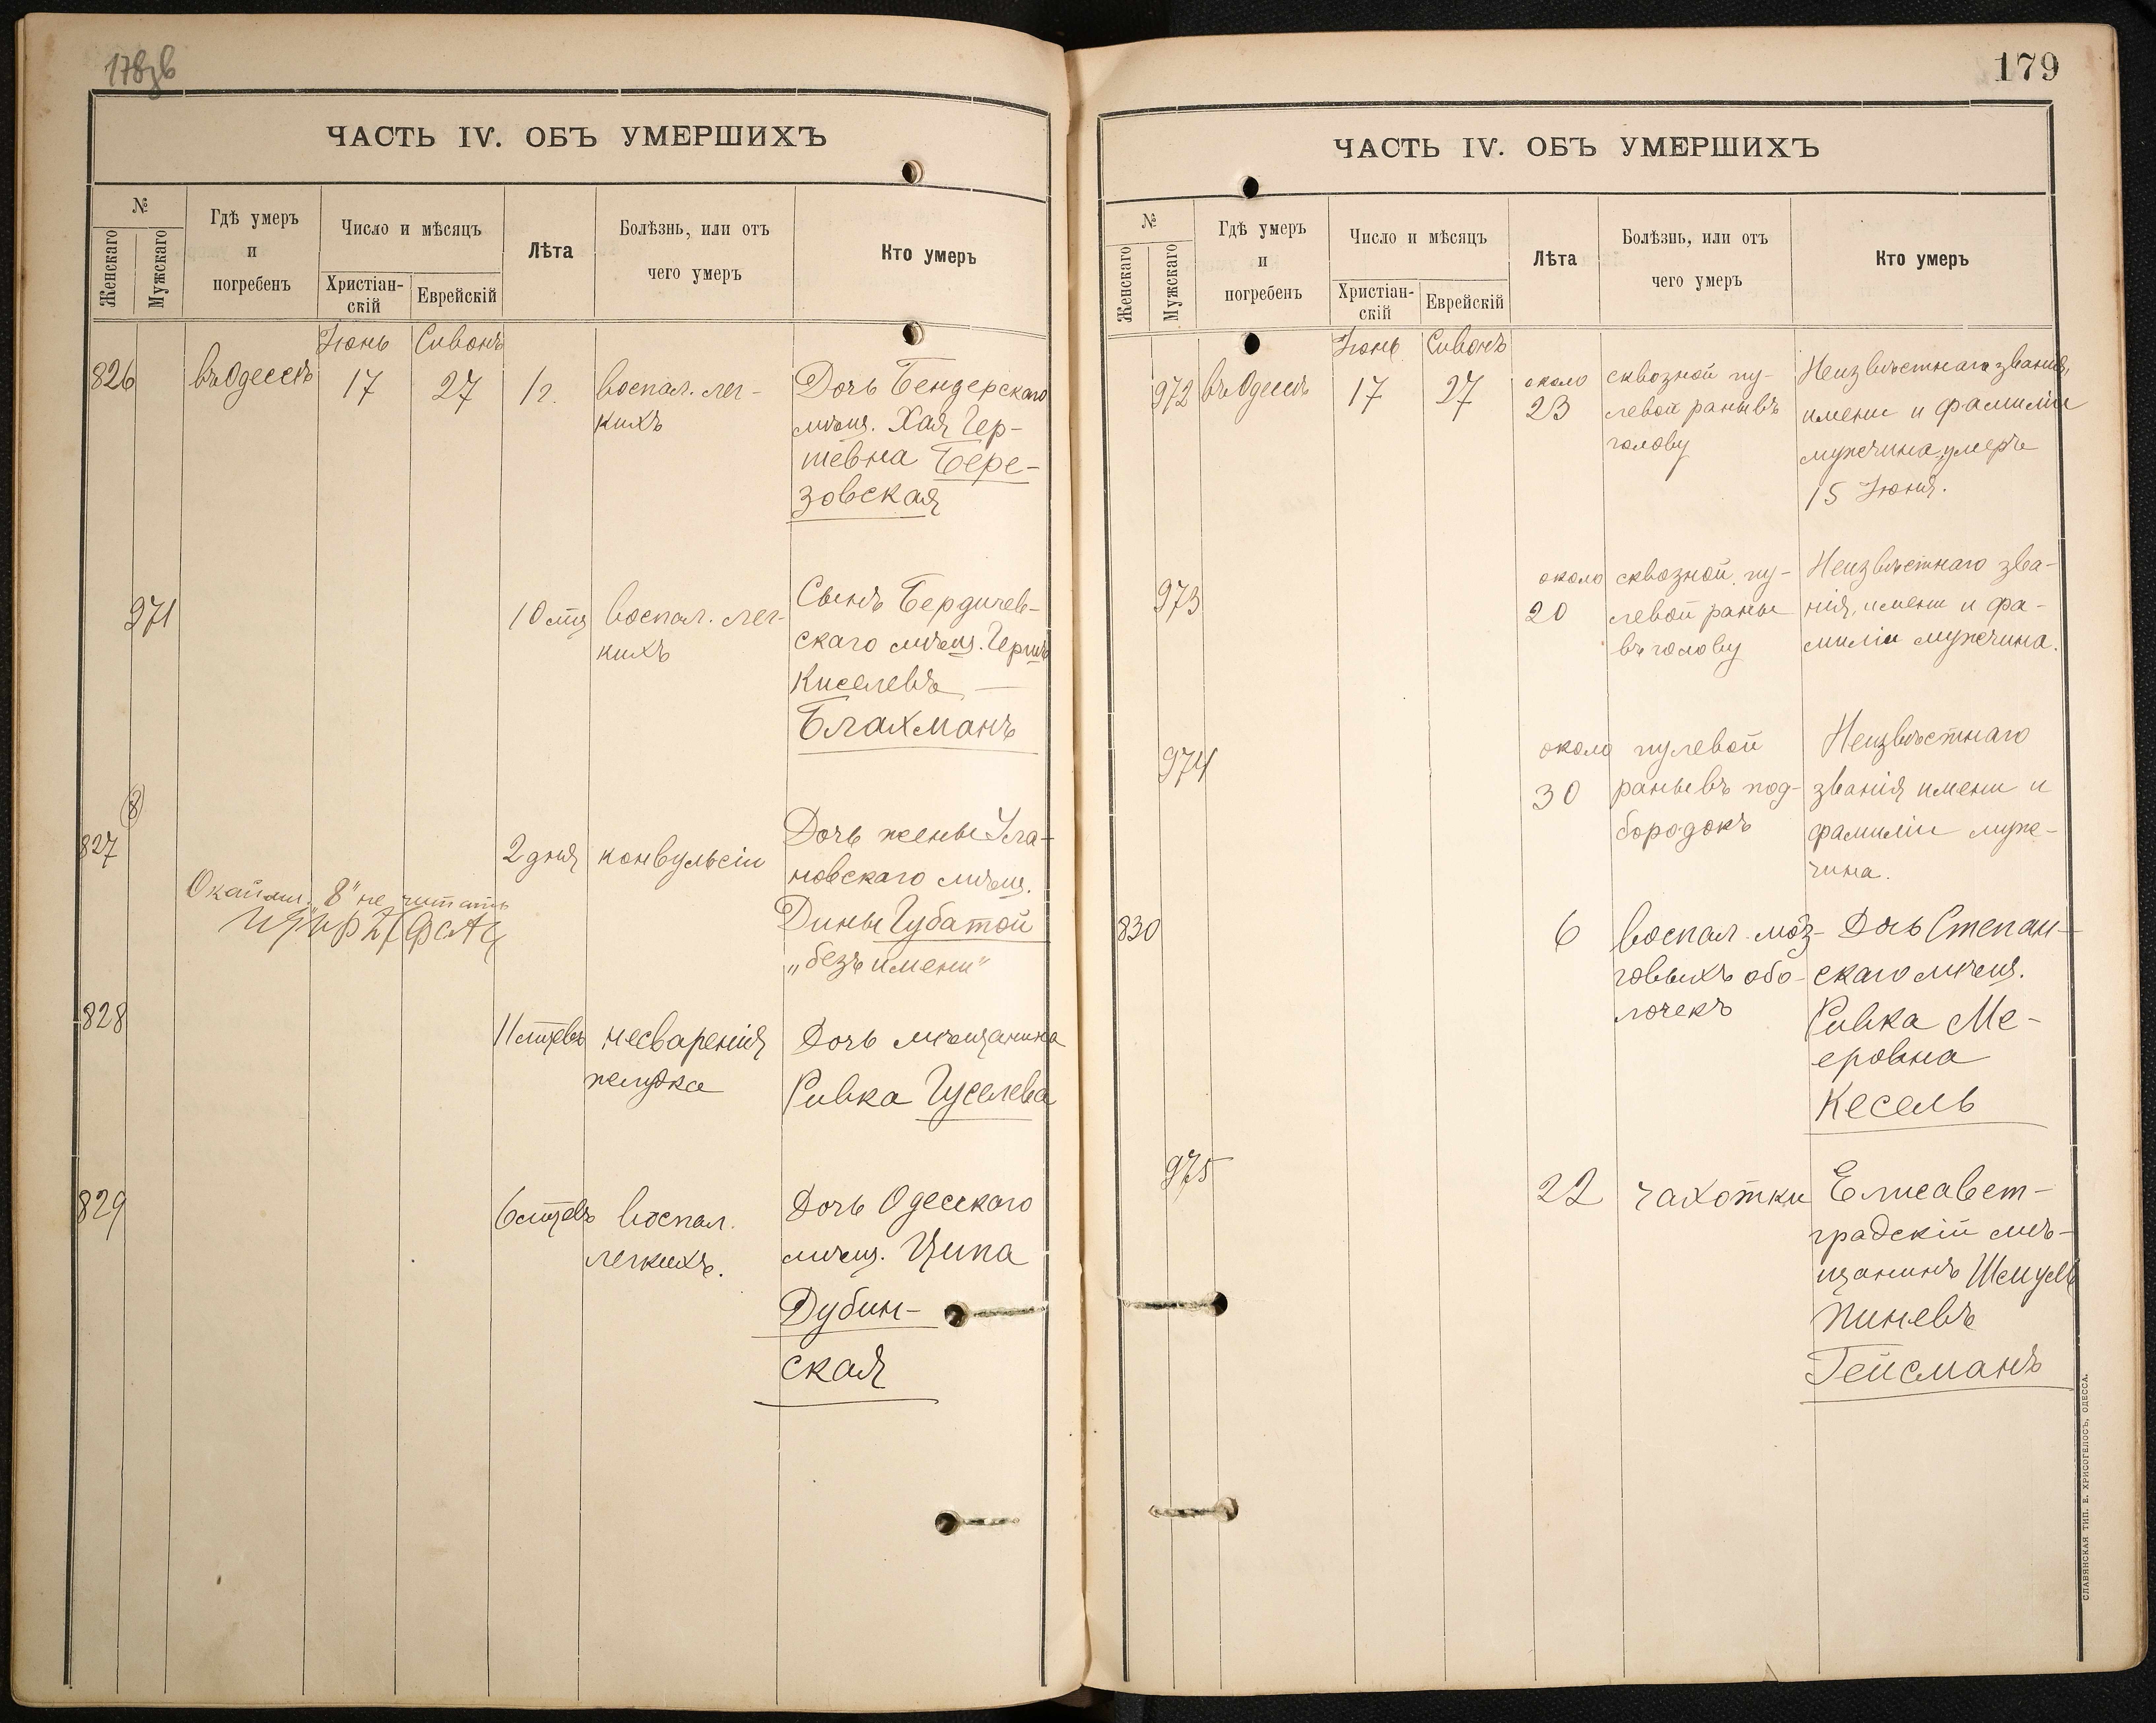 178зв
ЧАСТЬ IV. ОБЪ УМЕРШИХЪ
№
Женскаго
Мужскаго
Гдѣ умеръ
и
погребенъ
Число и мѣсяцъ
Христіан-
скій
Еврейскій
Лѣта
Болѣзнь, или отъ
чего умеръ
Кто умеръ
Іюнь Сивонъ
826 въ Одессѣ 17 27 1 г. воспал. лег-
кихъ
Дочь Бендерскаго
мѣщ. Хая Гер-
шевна Бере-
зовская
971 10 мц воспал. лег-
кихъ
Сынъ Бердичев-
скаго мѣщ. Гершъ
Киселевъ —
Блахманъ
8
827 2 дня конвульсіи
Дочь жены Ула-
новскаго мѣщ.
Дины Губатой
„безъ имени"
„8" не читать
828 11 мцевъ несваренія
желудка
Дочь мѣщанина
Ривка Гуселева
829 6 мцевъ воспал.
легкихъ.
Дочь Одесскаго
мѣщ. Ципа
Дубин-
ская
179
ЧАСТЬ IV. ОБЪ УМЕРШИХЪ
№
Женскаго
Мужскаго
Гдѣ умеръ
и
погребенъ
Число и мѣсяцъ
Христіан-
скій
Еврейскій
Лѣта
Болѣзнь, или отъ
чего умеръ
Кто умеръ
Іюнь Сивонъ
972 въ Одессѣ 17 27 около
23
сквозной пу-
левой раны въ
голову
Неизвѣстнаго званія,
имени и фамиліи
мужчина, умеръ
15 Іюня.
973 около
20
сквозной пу-
левой раны
въ голову
Неизвѣстнаго зва-
нія, имени и фа-
миліи мужчина.
974 около
30
пулевой
раны въ под-
бородокъ
Неизвѣстнаго
званія имени и
фамиліи муж-
чина.
830 6 воспал. моз-
говыхъ обо-
лочекъ
Дочь Степан-
скаго мѣщ.
Ривка Ме-
еровна
Кесель
975 22 чахотки
Елисавет-
градскій мѣ-
щанинъ Шмуль
Пиневъ
Гейсманъ
СЛАВЯНСКАЯ ТИП. Е. ХРИСОГЕЛОСЪ, ОДЕССА.